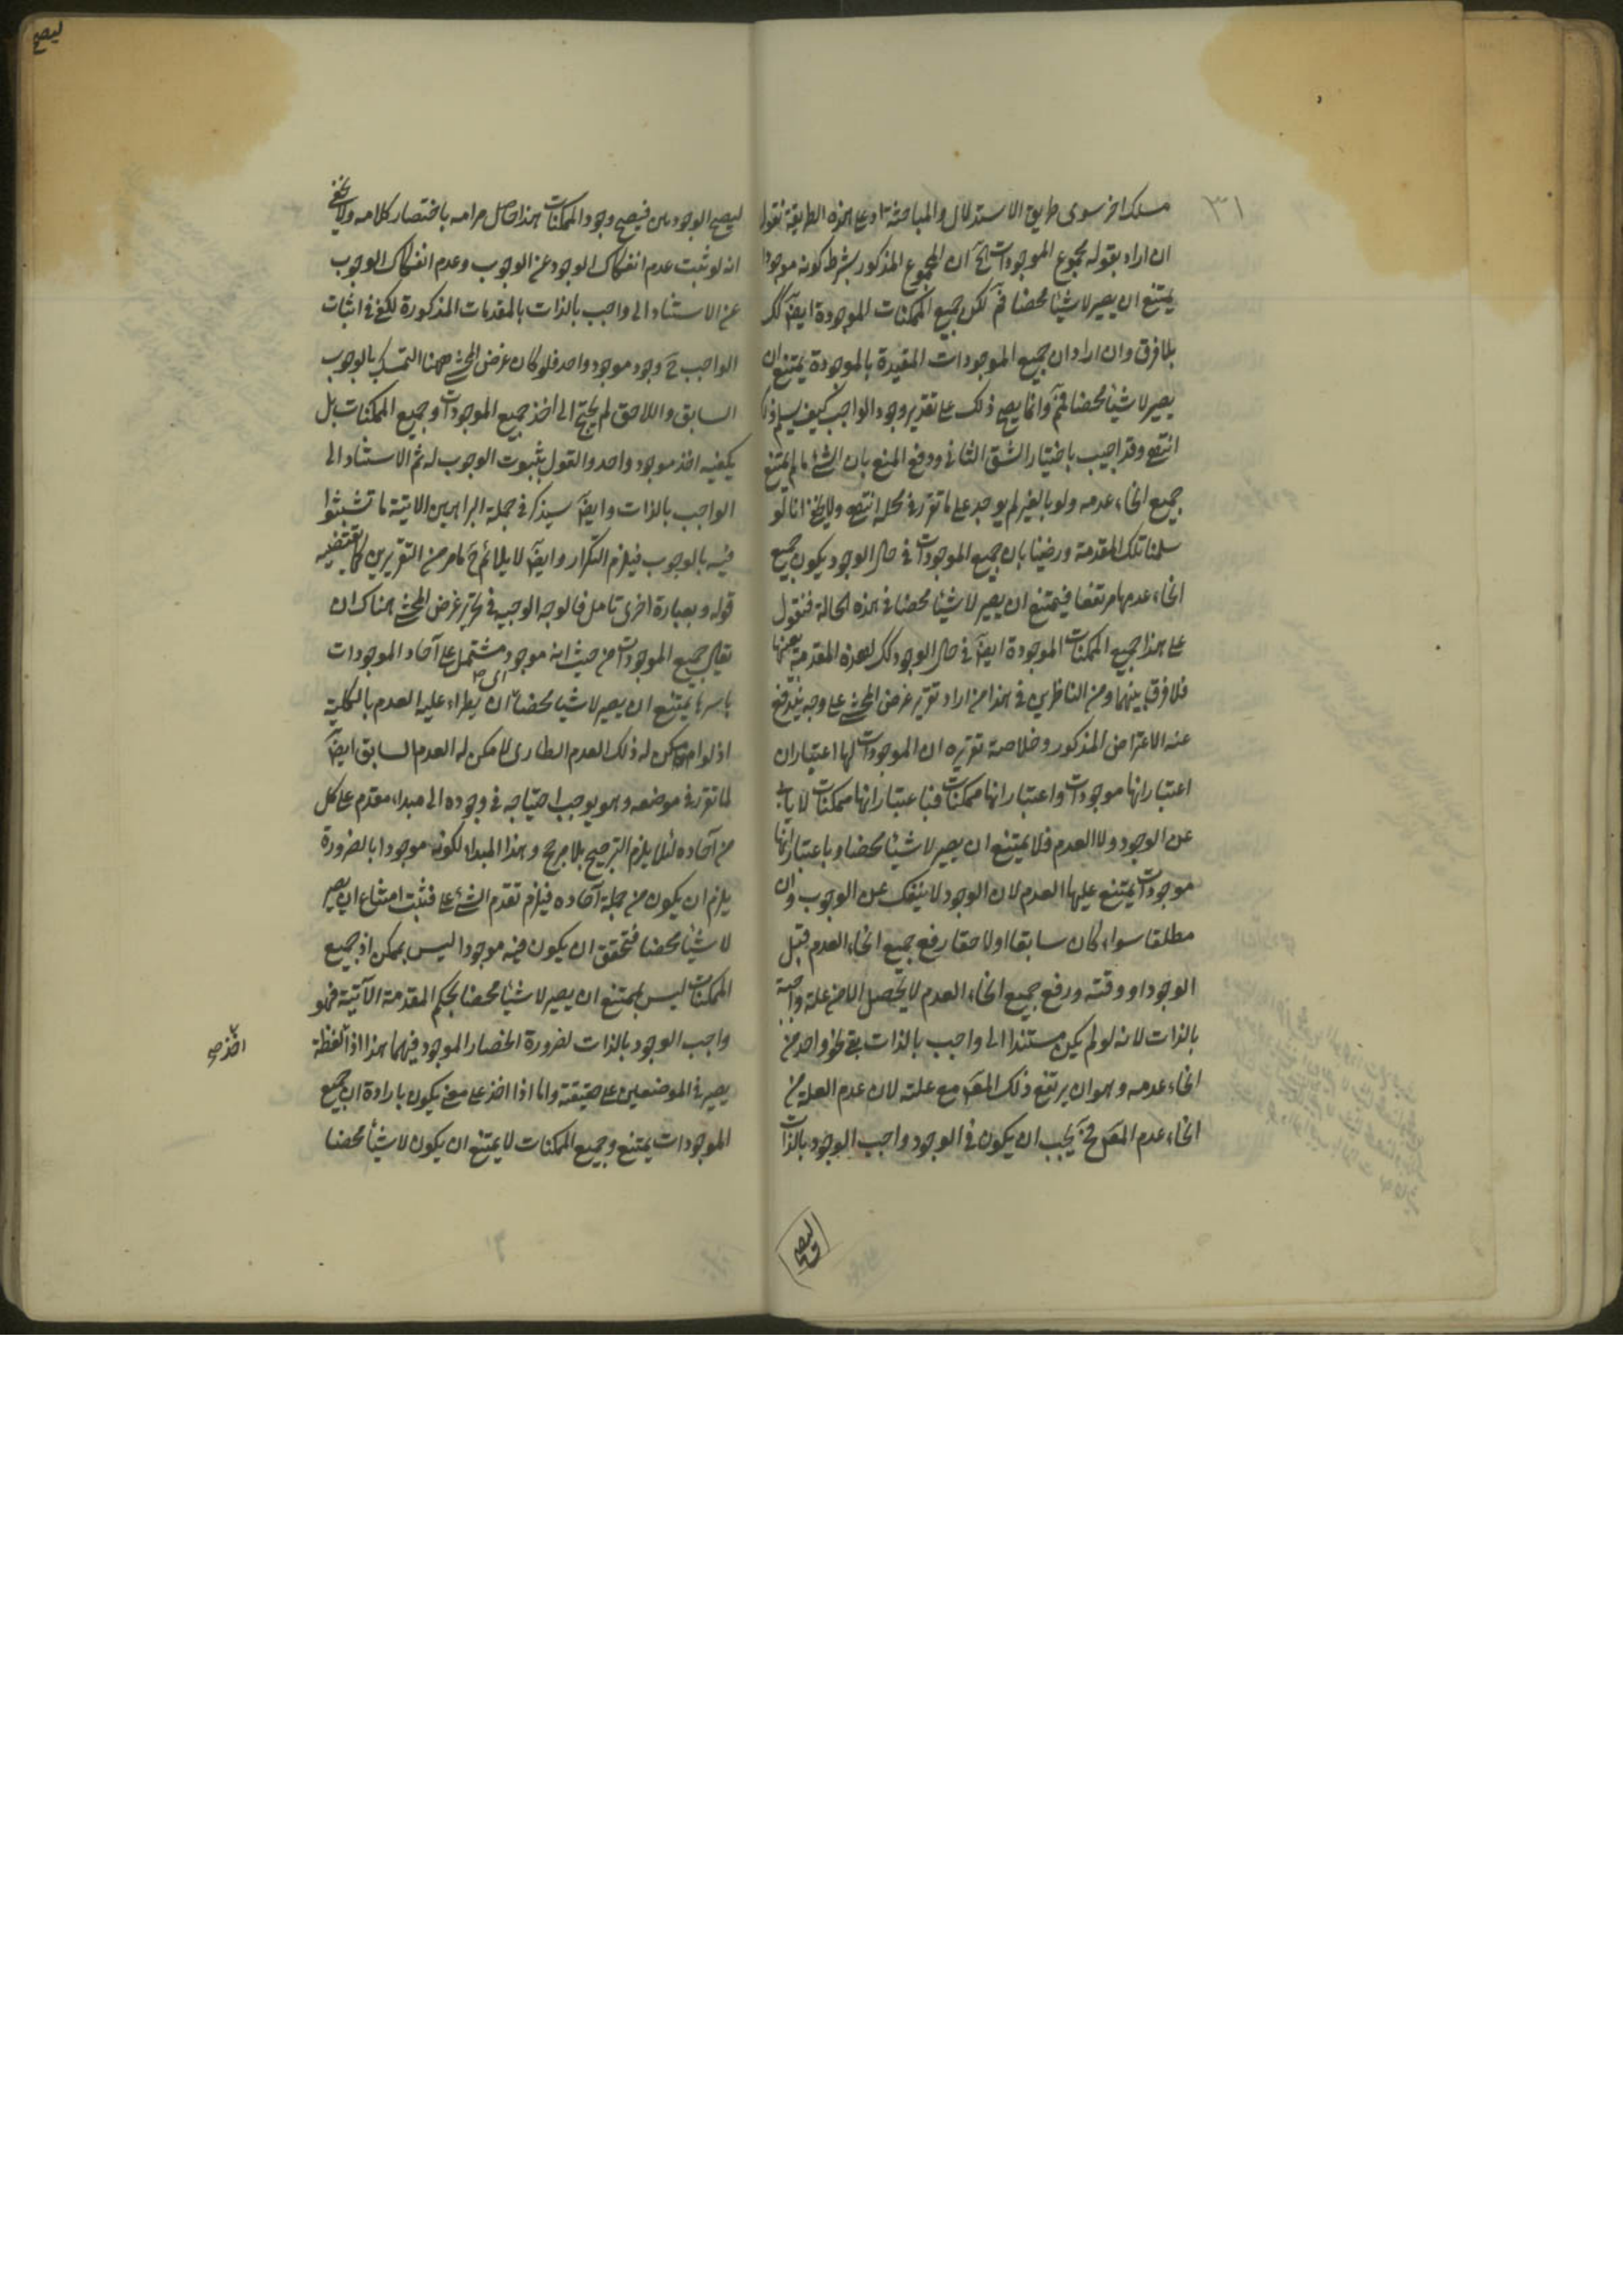 ٣١
مسلك اخر سوى طريق الاستدلال والمباحثة اد على هذه الطريقة نقول
ان اراد بقوله مجموع الموجودات الخ ان المجموع المذكور بشرط كونه موجودا
يمتنع ان يصير لا شيئا محضا فم لكن جميع الممكنات الموجودة ايضا كك
بلا فرق وان اراد ان جميع الموجودات المقيدة بالموجودة يمتنع ان
يصير لا شيئا محضا فم وانما يصح ذلك على تقدير وجود الواجب كيف يسلم ذلك
انتهى وقد اجيب باختيار الشق الثاني ودفع المنع بان الشئ ما لم يمتنع
جميع انحاء عدمه ولو بالغير لم يوجد على ما تقرر في محله انتهى ولا يخفى انا لو
سلمنا تلك المقدمة ورضينا بان جميع الموجودات في حال الوجود يكون جميع
انحاء عدمها مرتفعا فيمتنع ان يصير لا شيئا محضا في هذه الحالة فنقول
على هذا جميع الممكنات الموجودة ايضا في حال الوجود كك لهذه المقدمة بعينها
فلا فرق بينهما ومن الناظرين في هذا من اراد تقرير غرض المحشي على وجه يندفع
عنه الاعتراض المذكور وخلاصة تقريره ان الموجودات لها اعتباران
اعتبار انها موجودات واعتبار انها ممكنات فباعتبار انها ممكنات لا يابى
عن الوجود ولا العدم فلا يمتنع ان يصير لا شيئا محضا وباعتبار انها
موجودات يمتنع عليها العدم لان الوجود لا ينفك عن الوجوب وان
مطلقا سواء كان سابقا او لاحقا رفع جميع انحاء العدم قبل
الوجود او وقته ورفع جميع انحاء العدم لا يحصل الا من علة واجبة
بالذات لانه لو لم يكن مستندا الى واجب بالذات بقي نحو واحد من
انحاء عدمه وهو ان يرتفع ذلك المعلول مع علته لان عدم العلة من
انحاء عدم المعلول فح يجب ان يكون في الوجود واجب الوجود بالذات
ليصح
ليصح الوجود من فيصح وجود الممكنات هذا حاصل مرامه باختصار كلامه ولا يخفى
انه لو ثبت عدم انفكاك الوجود عن الوجوب وعدم انفكاك الوجوب
عن الاستناد الى واجب بالذات بالمقدمات المذكورة لكفى في اثبات
الواجب ح وجود موجود واحد فلو كان غرض المحشي ههنا التمسك بالوجوب
السابق واللاحق لم يحتج الى اخذ جميع الموجودات وجميع الممكنات بل
يكفيه اخذ موجود واحد والقول بثبوت الوجوب له ثم الاستناد الى
الواجب بالذات وايضا سيذكر في جملة البراهين الاتية ما تشبثوا
فيه بالوجوب فيلزم التكرار وايضا لا يلائم ح ما مر من التقريرين كما يقتضيه
قوله وبعبارة اخرى تامل فالوجه الوجيه في تحرير غرض المحشي هناك ان
يقال جميع الموجودات من حيث انه موجود مشتمل على آحاد الموجودات
باسرها يمتنع ان يصير لا شيئا محضا اى ان يطراء عليه العدم بالكلية
اذ لو امكن له ذلك العدم الطارى لامكن له العدم السابق ايضا
لما تقرر في موضعه وهو يوجب احتياجه في وجوده الى مبداء مقدم على كل
من آحاده لئلا يلزم الترجيح بلا مرجح وهذا المبداء لكونه موجودا بالضرورة
يلزم ان يكون من جملة آحاده فيلزم تقدم الشئ على فثبت امتناع ان يصير
لا شيئا محضا فتحقق ان يكون فيه موجودا ليس بممكن اذ جميع
الممكنات ليس بممتنع ان يصير لا شيئا محضا بحكم المقدمة الآتية فهو
واجب الوجود بالذات لضرورة انحصار الموجود فيهما هذا اذا لفظة
اخذ صح
يصير في الموضعين على حقيقته واما اذا اخذ على معنى يكون بارادة ان جميع
الموجودات يمتنع وجميع الممكنات لا يمتنع ان يكون لا شيأ محضا